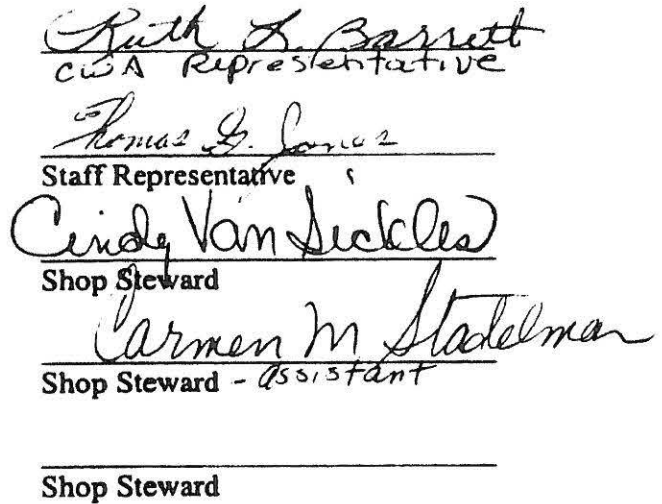 Ruth L. Barrett
CWA Representative
Thomas G. Jones
Staff Representative
Cindy Van Sickles
Shop Steward
Carmen M Stadelman
Shop Steward - assistant
Shop Steward